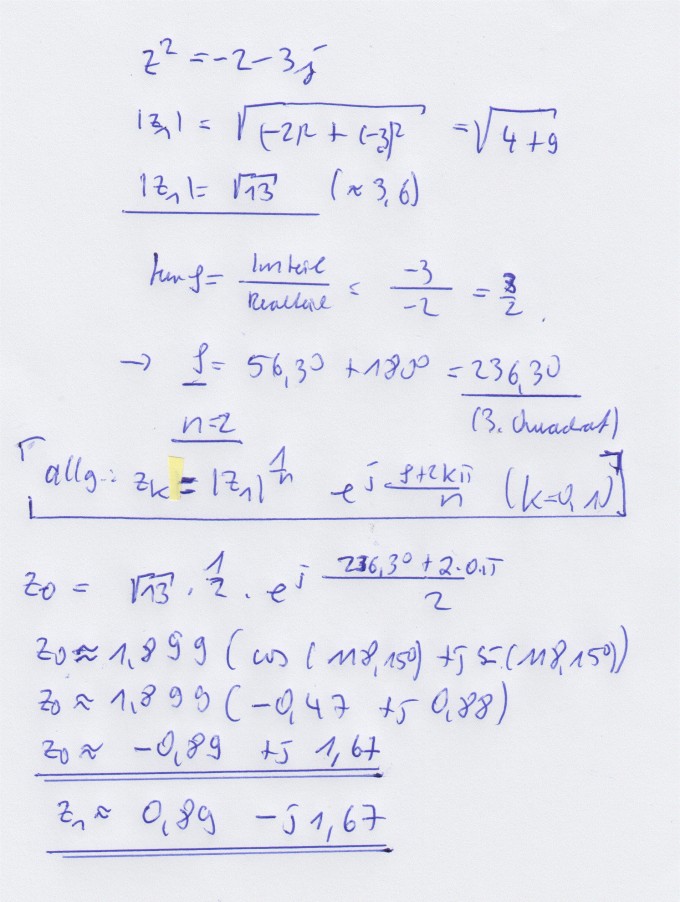 z² = -2 - 3j
|z₁| = √((-2)² + (-3)²) = √(4+9)
|z₁| = √13 (≈ 3,6)
tan φ = Imteil / Realteil = -3 / -2 = 3/2
→ φ = 56,3° + 180° = 236,3°
n=2 (3. Quadrat)
allg.: z_k = |z₁|^(1/n) e^(j (φ+2kπ)/n) (k=0,1)
z₀ = √13 · 1/2 · e^(j (236,3° + 2·0·π)/2)
z₀ ≈ 1,899 (cos (118,15°) + j s (118,15°))
z₀ ≈ 1,899 (-0,47 + j 0,88)
z₀ ≈ -0,89 + j 1,67
z₁ ≈ 0,89 - j 1,67